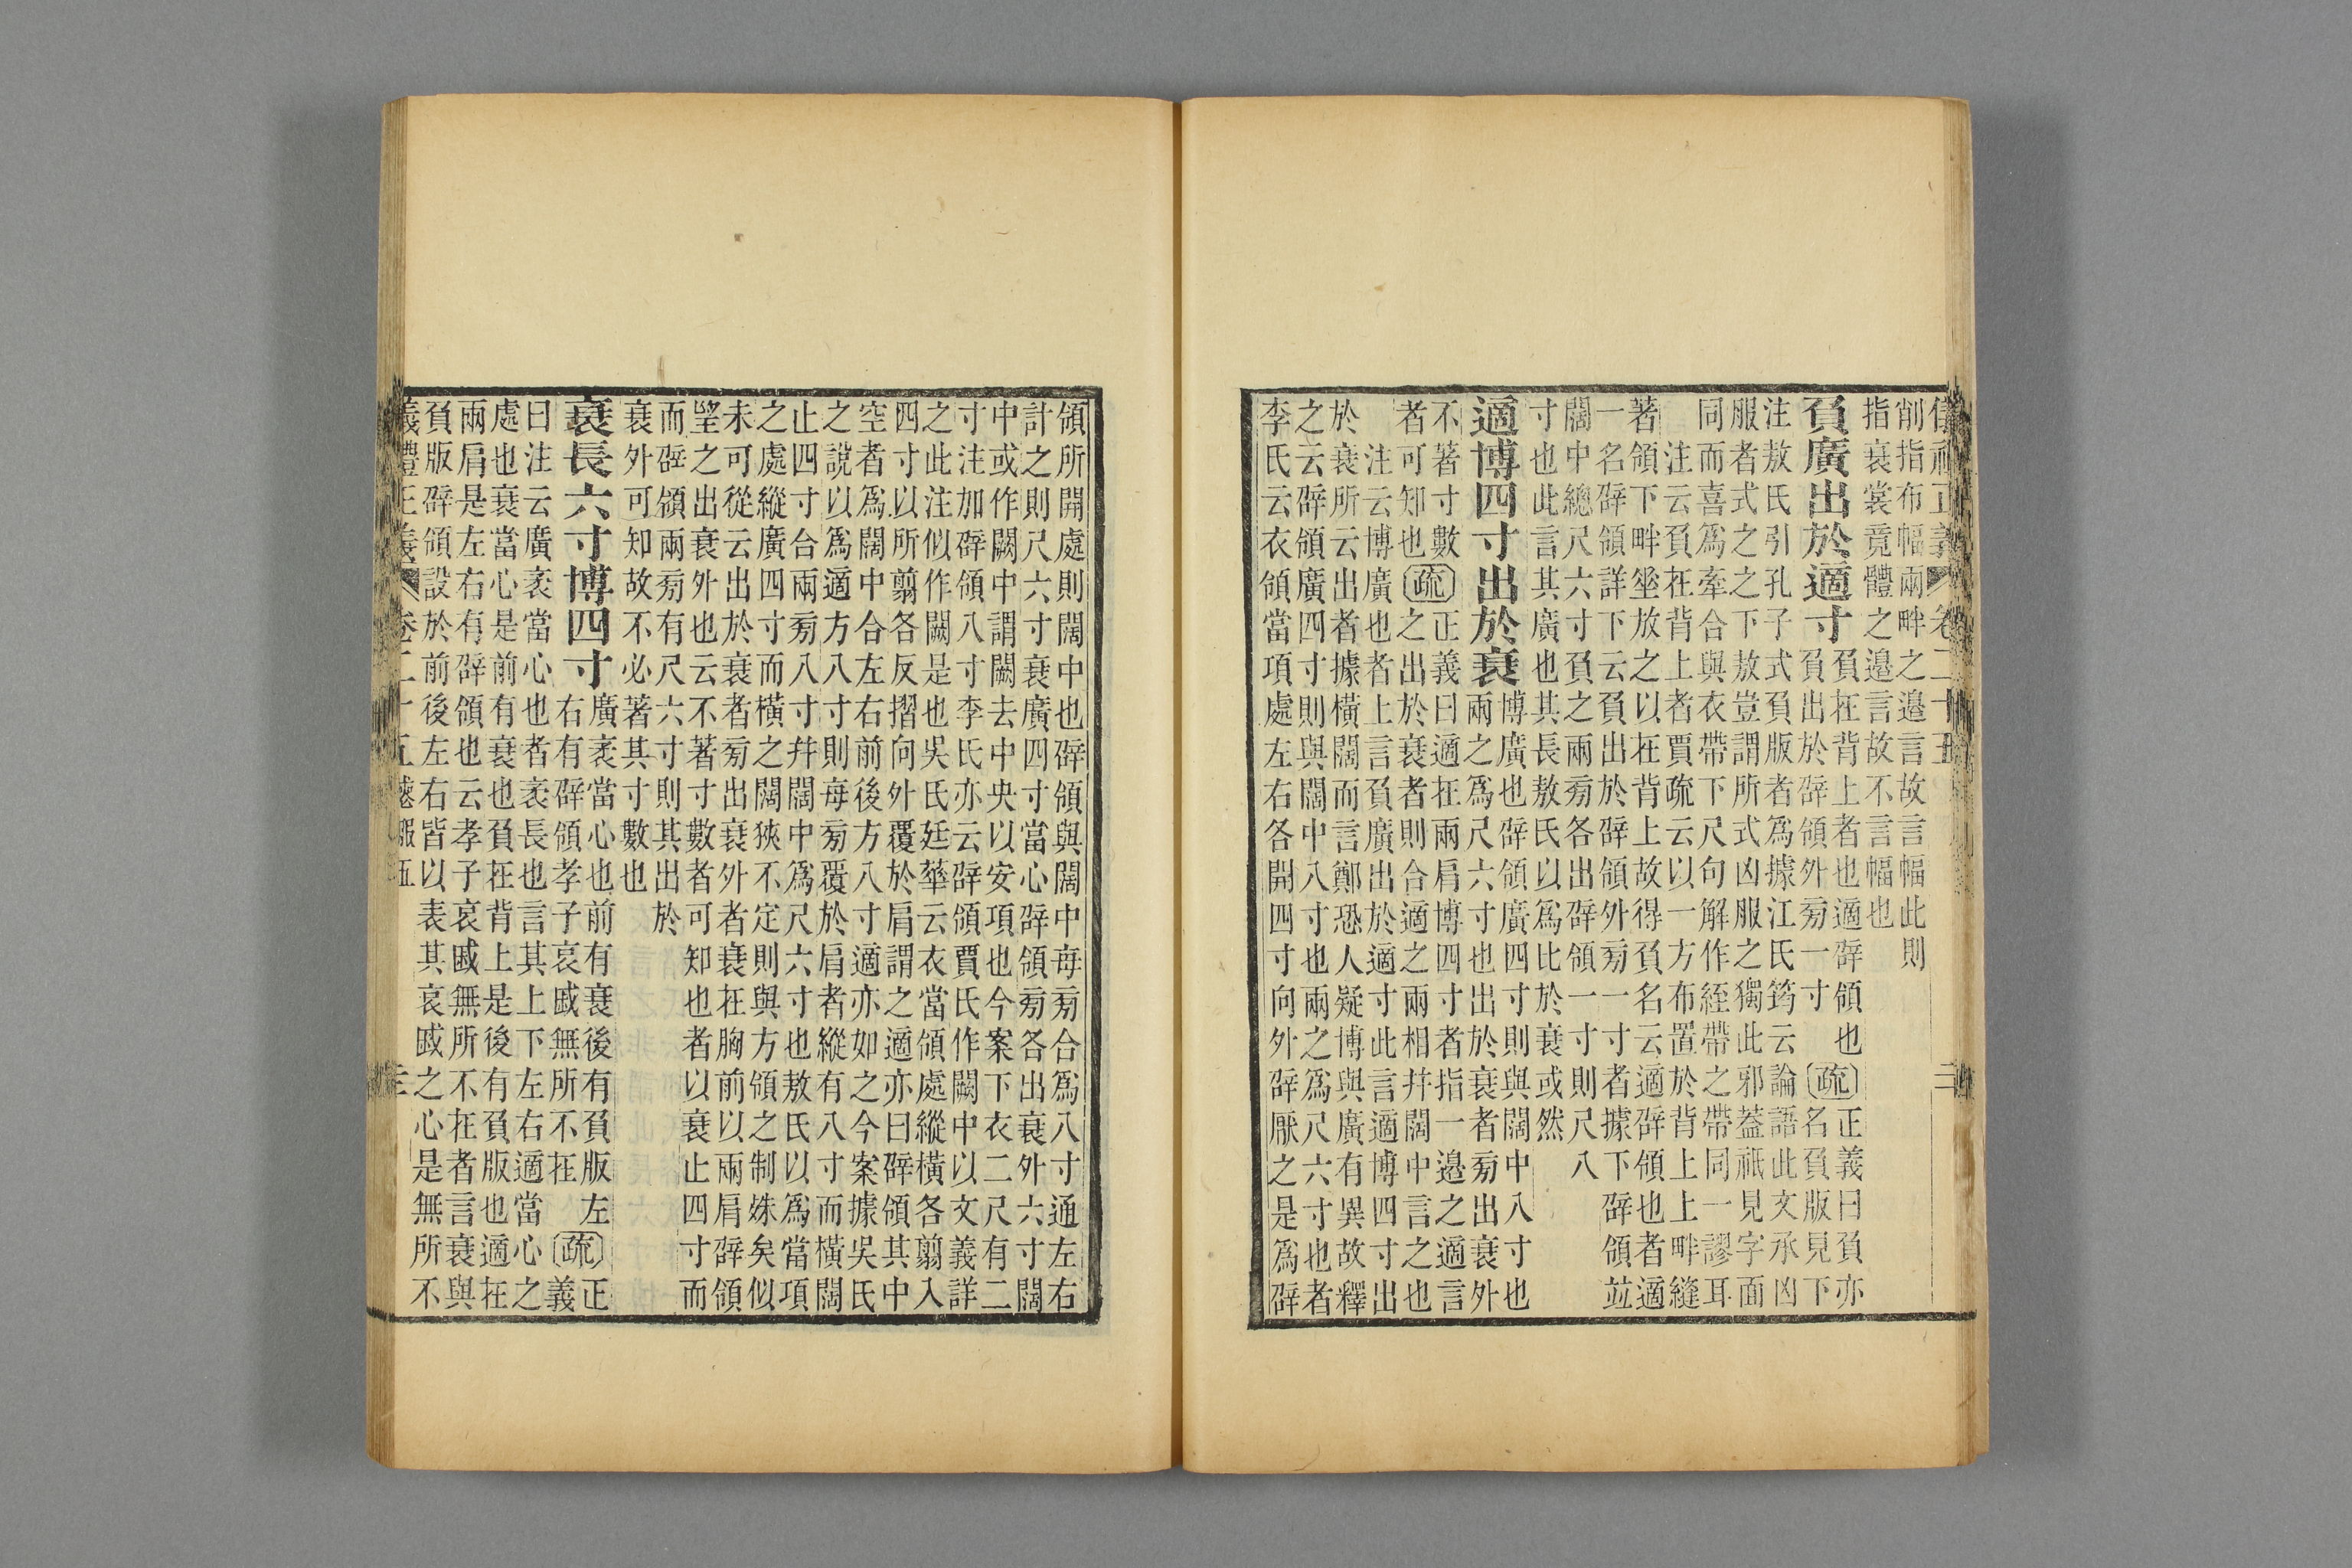 儀禮正義 卷二十五 二
削指布幅兩畔之邊言故言幅此則
指衰裳竟體之邊言故不言幅也
負廣出於適寸
負在背上者也適辟領也
負出於辟領外旁一寸
疏
正義曰負亦
名負版見下
注敖氏引孔子式負版者為據江氏筠云論語此文承凶
服者式之之下敖豈謂所式凶服之獨此邪蓋祇見字面
同而喜為牽合與衣帶下尺句解作絰帶之帶同一謬耳
注云負在背上者賈疏云以一方布置於背上上畔縫
著領下畔垂放之以在背上故得負名云適辟領也者適
一名辟領詳下云負出於辟領外旁一寸者據下辟領並
闊中總尺六寸負之兩旁各出辟領一寸則尺八
寸也此言其廣也其長敖氏以為比於衰或然
適博四寸出於衰
博廣也辟領廣四寸則與闊中八寸也
兩之為尺六寸也出於衰者旁出衰外
不著寸數
者可知也
疏
正義曰適在兩肩博四寸者指一邊之適言
之出於衰者則合適之兩相并闊中言之也
注云博廣也者上言負廣出於適寸此言適博四寸出
於衰所云出者據橫闊而言鄭恐人疑博與廣有異故釋
之云辟領廣四寸則與闊中八寸也兩之為尺六寸也者
李氏云衣領當項處左右各開四寸向外辟厭之是為辟
領所開處則闊中也辟領與闊中每旁合為八寸通左右
計之則尺六寸衰廣四寸當心辟領旁各出衰外六寸闊
中或作闕中謂闕去中央以安項也今案下衣二尺有二
寸注加辟領八寸李氏亦云辟領賈氏作闕中以文義詳
之此注似作闕是也吳氏廷華云衣當領處縱橫各翦入
四寸以所翦各反摺向外覆於肩謂之適亦曰辟領其中
空者為闊中合左右前後方八寸適亦如之今案據吳氏
之說以為適方八寸則每旁覆於肩者縱有八寸而橫闊
止四寸合兩旁八寸并闊中為尺六寸也敖氏以為當項
之處縱廣四寸而橫之闊狹不定則與方領之制殊矣似
未可從云出於衰者旁出衰外者衰在胸前以兩肩辟領
望之出衰外也云不著寸數者可知也者以衰止四寸而
而辟領兩旁有尺六寸則其出於
衰外可知故不必著其寸數也
衰長六寸博四寸
廣袤當心也前有衰後有負版左
右有辟領孝子哀戚無所不在
疏
正
義
曰注云廣袤當心也者袤長也言其上下左右適當心之
處也衰當心是前有衰也負在背上是後有負版也適在
兩肩是左右有辟領也云孝子哀戚無所不在者言衰與
負版辟領設於前後左右皆以表其哀戚之心是無所不
儀禮正義 卷二十五 喪服五 三